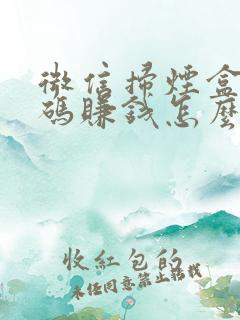 微信掃煙盒
碼賺錢怎麼
收紅包的
未經同意禁止轉載